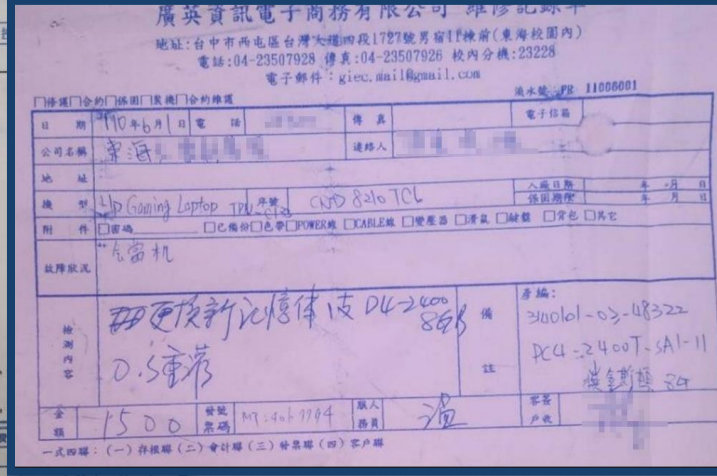 廣英資訊電子商務有限公司 維修記錄單
地址:台中市西屯區台灣大道四段1727號男宿11棟前(東海校園內)
電話:04-23507928 傳真:04-23507926 校內分機:23228
電子郵件:giec.mail@gmail.com
流水號:PR 11006001
□修護□合約□保固□裝機□合約維護
日期 110年6月1日 電話 傳真 電子信箱
公司名稱 東海 連絡人
地址
機型 HP Gaming Laptop 序號 CND 8210 TCL 入廠日期 年 月 日
保固期限 年 月 日
附件 □密碼 □已備份□色帶□POWER線 □CABLE線 □變壓器 □滑鼠 □鍵盤 □背包 □其它
故障狀況 會當机
檢測內容 更換新記憶体 D4-2400
8GB
O.S重灌
備註 序編:
3140101-03-48322
PC4-2400T-SA1-11
金額 1500 發票號碼 服務人員 客戶簽收
一式四聯:(一)存根聯(二)會計聯(三)發票聯(四)客戶聯